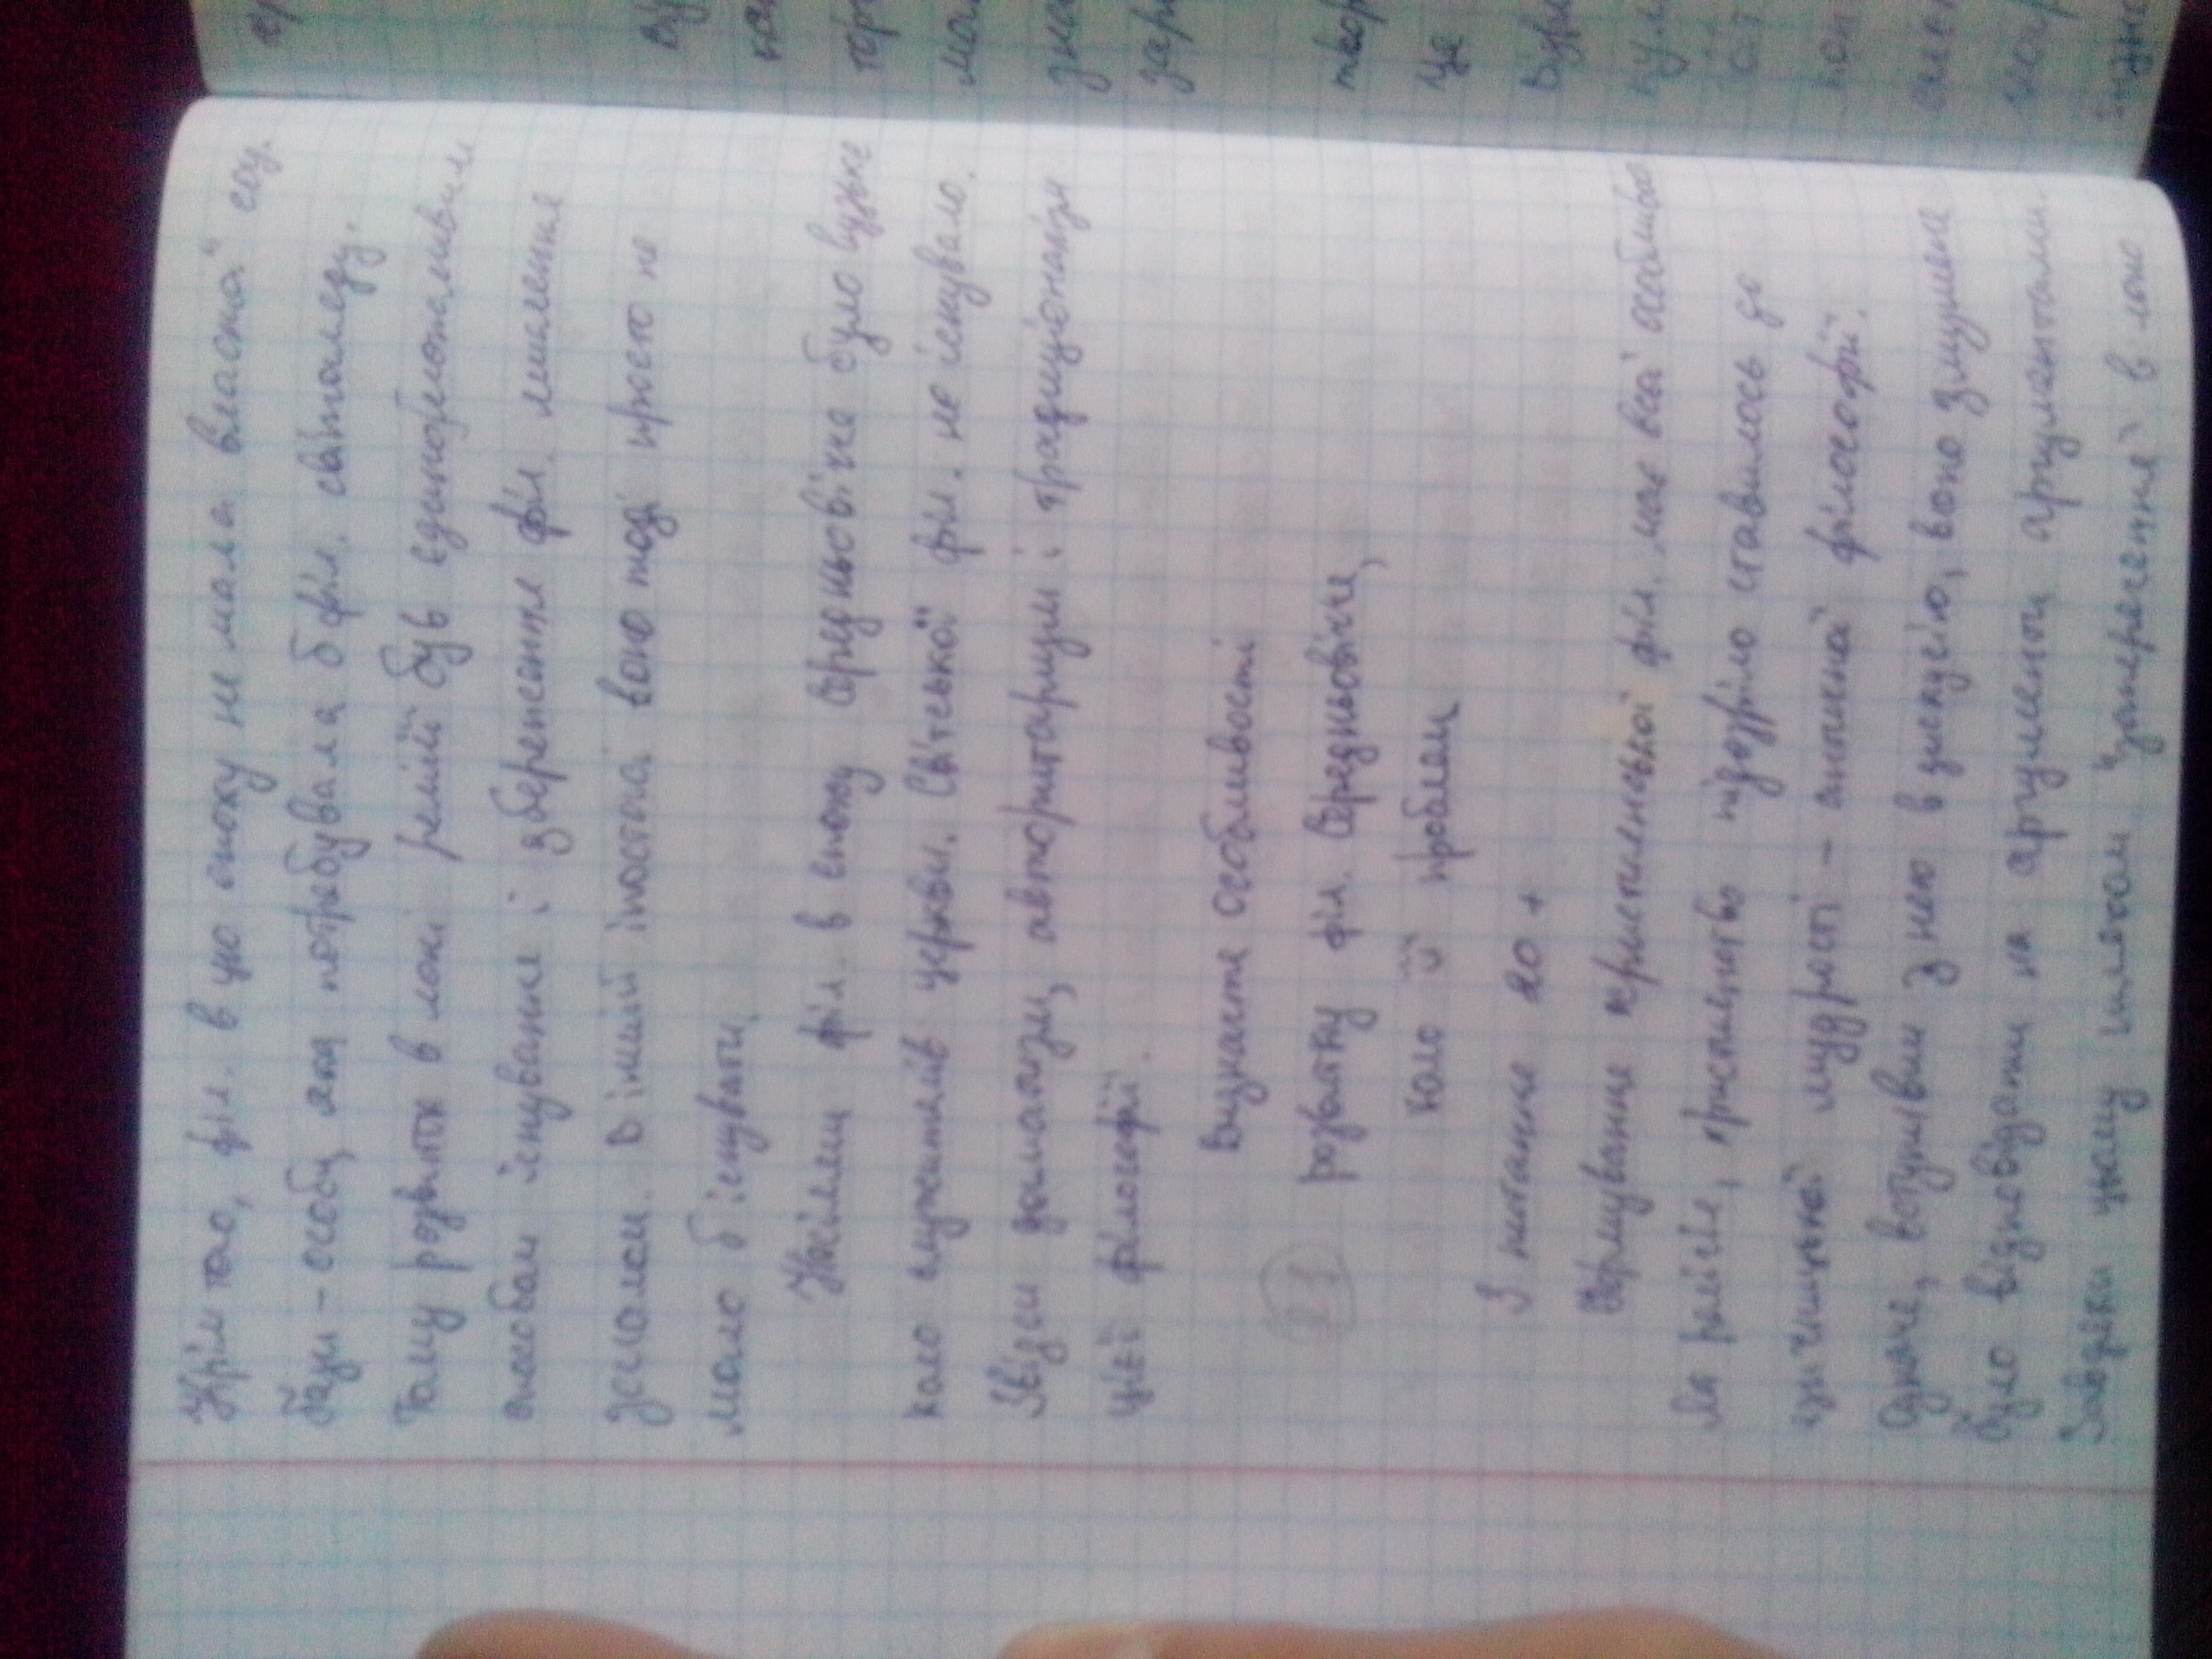 Крім того, філ. в цю епоху не мала власної соц.
бази - особи, яка потребувала б філ. світогляду.
Тому розвиток в лоні релігії був єдиноможливим
способом існування і збереження філ. мислення
загалом. В іншій іпостасі вона тоді просто не
могла б існувати.
Носіями філ. в епоху Середньовіччя було вузьке
коло служителів церкви. Світської філ. не існувало.
Звідси догматизм, авторитаризм і традиціоналізм
цієї філософії.
21
Визначте особливості
розвитку філ. Середньовіччя,
коло її проблем
З питання 20 +
Формування християнської філ. має свої особливо
ля релігія, християнство підозріло ставилось до
язичницької мудрості - античної філософії.
Однак, вступивши з нею в дискусію, воно змушене
було відповідати на аргументи аргументами.
Завдяки цьому шляхом "заперечення" в лоно